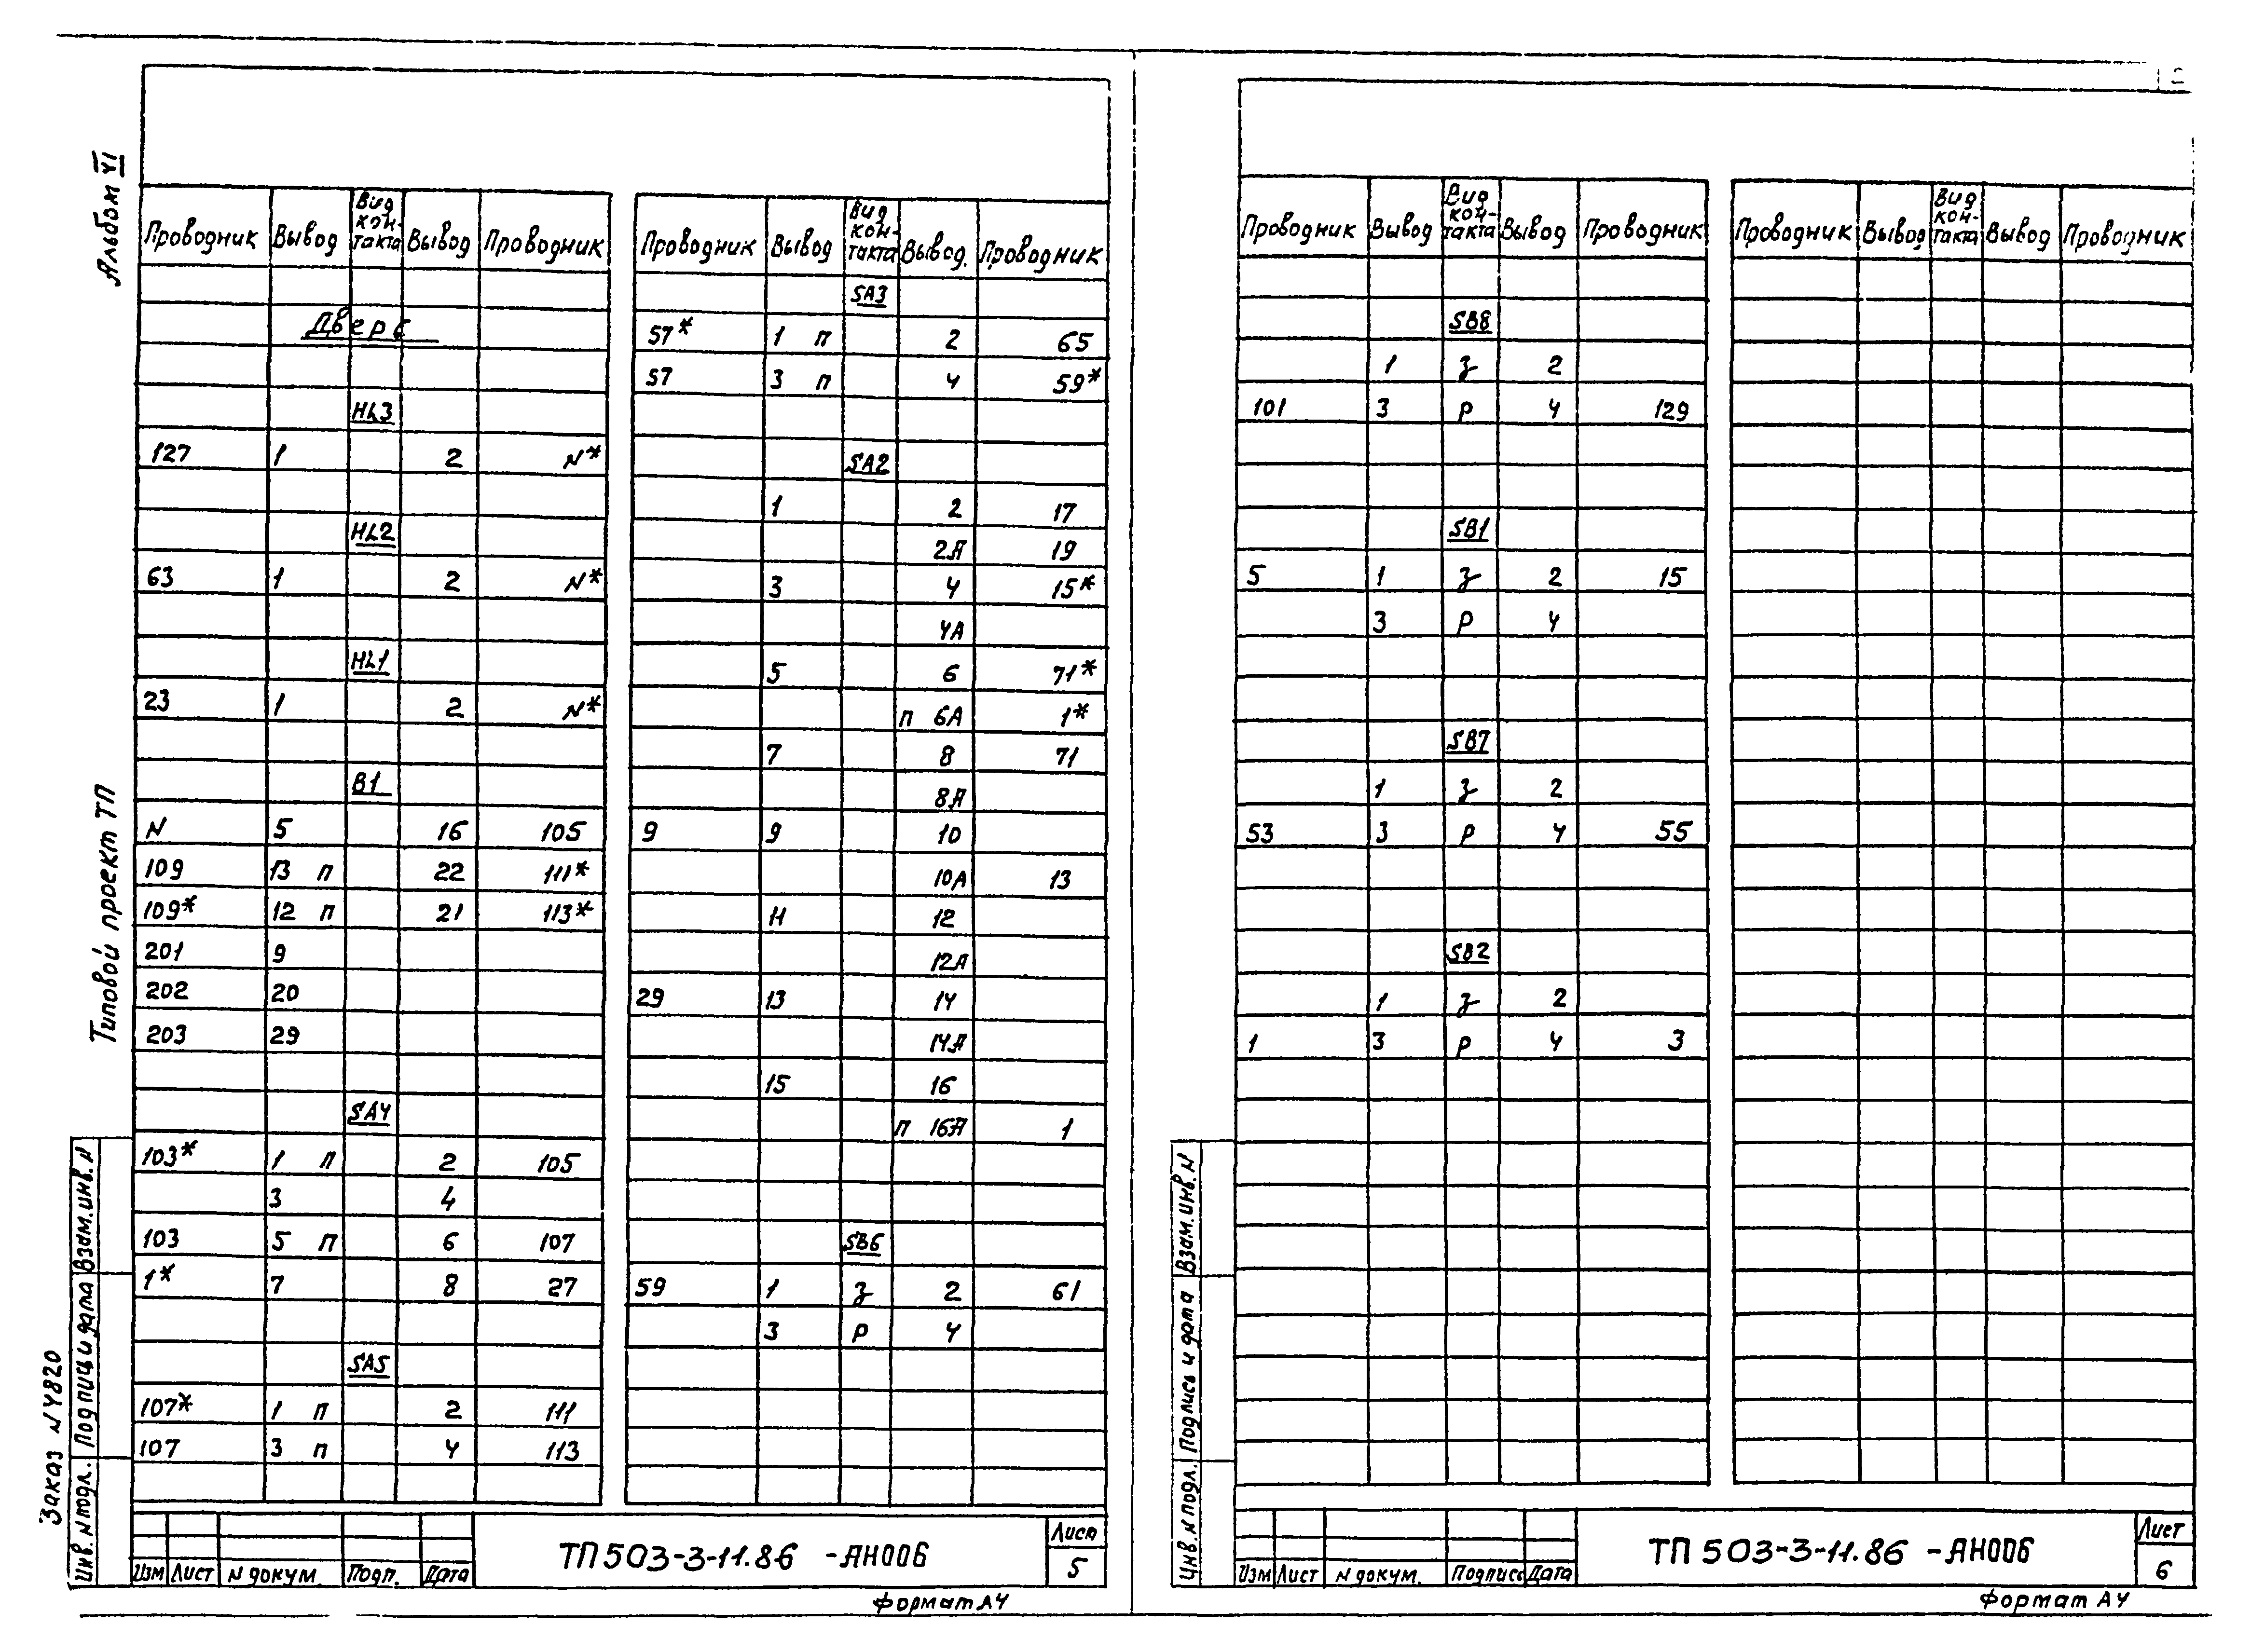 Альбом VI
Типовой проект ТП
Заказ N4820
Инв. N подл. Подпись и дата Взам. инв. N
Проводник Вывод Вид кон-такта Вывод Проводник
Дверь
HL3
127 1 2 N*
HL2
63 1 2 N*
HL1
23 1 2 N*
B1
N 5 16 105
109 13 п 22 111*
109* 12 п 21 113*
201 9
202 20
203 29
SA4
103* 1 п 2 105
3 4
103 5 п 6 107
1* 7 8 27
SA5
107* 1 п 2 111
107 3 п 4 113
Проводник Вывод Вид кон-такта Вывод. Проводник
SA3
57* 1 п 2 65
57 3 п 4 59*
SA2
1 2 17
2А 19
3 4 15*
4А
5 6 71*
п 6А 1*
7 8 71
8А
9 9 10
10А 13
11 12
12А
29 13 14
14А
15 16
п 16А 1
SB6
59 1 з 2 61
3 р 4
Изм Лист N докум. Подп. Дата
ТП 503-3-11.86 -АН006
Лист
5
Формат А4
Проводник Вывод Вид кон-такта Вывод Проводник
SB8
1 з 2
101 3 р 4 129
SB1
5 1 з 2 15
3 р 4
SB7
1 з 2
53 3 р 4 55
SB2
1 з 2
1 3 р 4 3
Проводник Вывод Вид кон-такта Вывод Проводник
Инв. N подл. Подпись и дата Взам. инв. N
Изм Лист N докум. Подпись Дата
ТП 503-3-11.86 -АН006
Лист
6
Формат А4